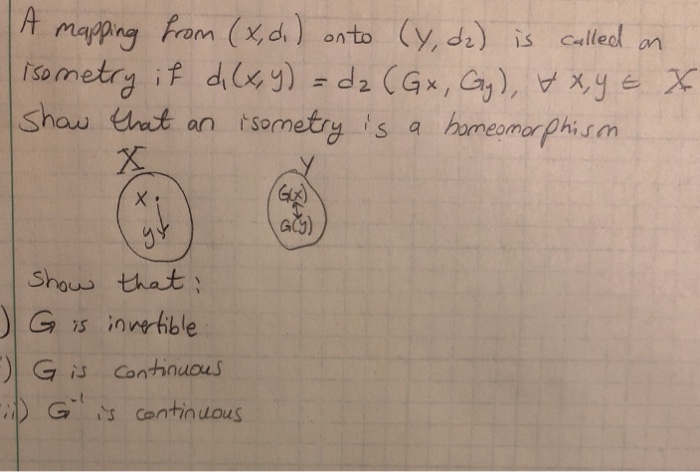 A mapping from (X,d₁) onto (Y, d₂) is called an
isometry if d₁(x,y) = d₂ (Gx, Gy), ∀ x,y ∈ X
Show that an isometry is a homeomorphism
X Y
x G(x)
y G(y)
Show that :
) G is invertible
i) G is continuous
ii) G⁻¹ is continuous